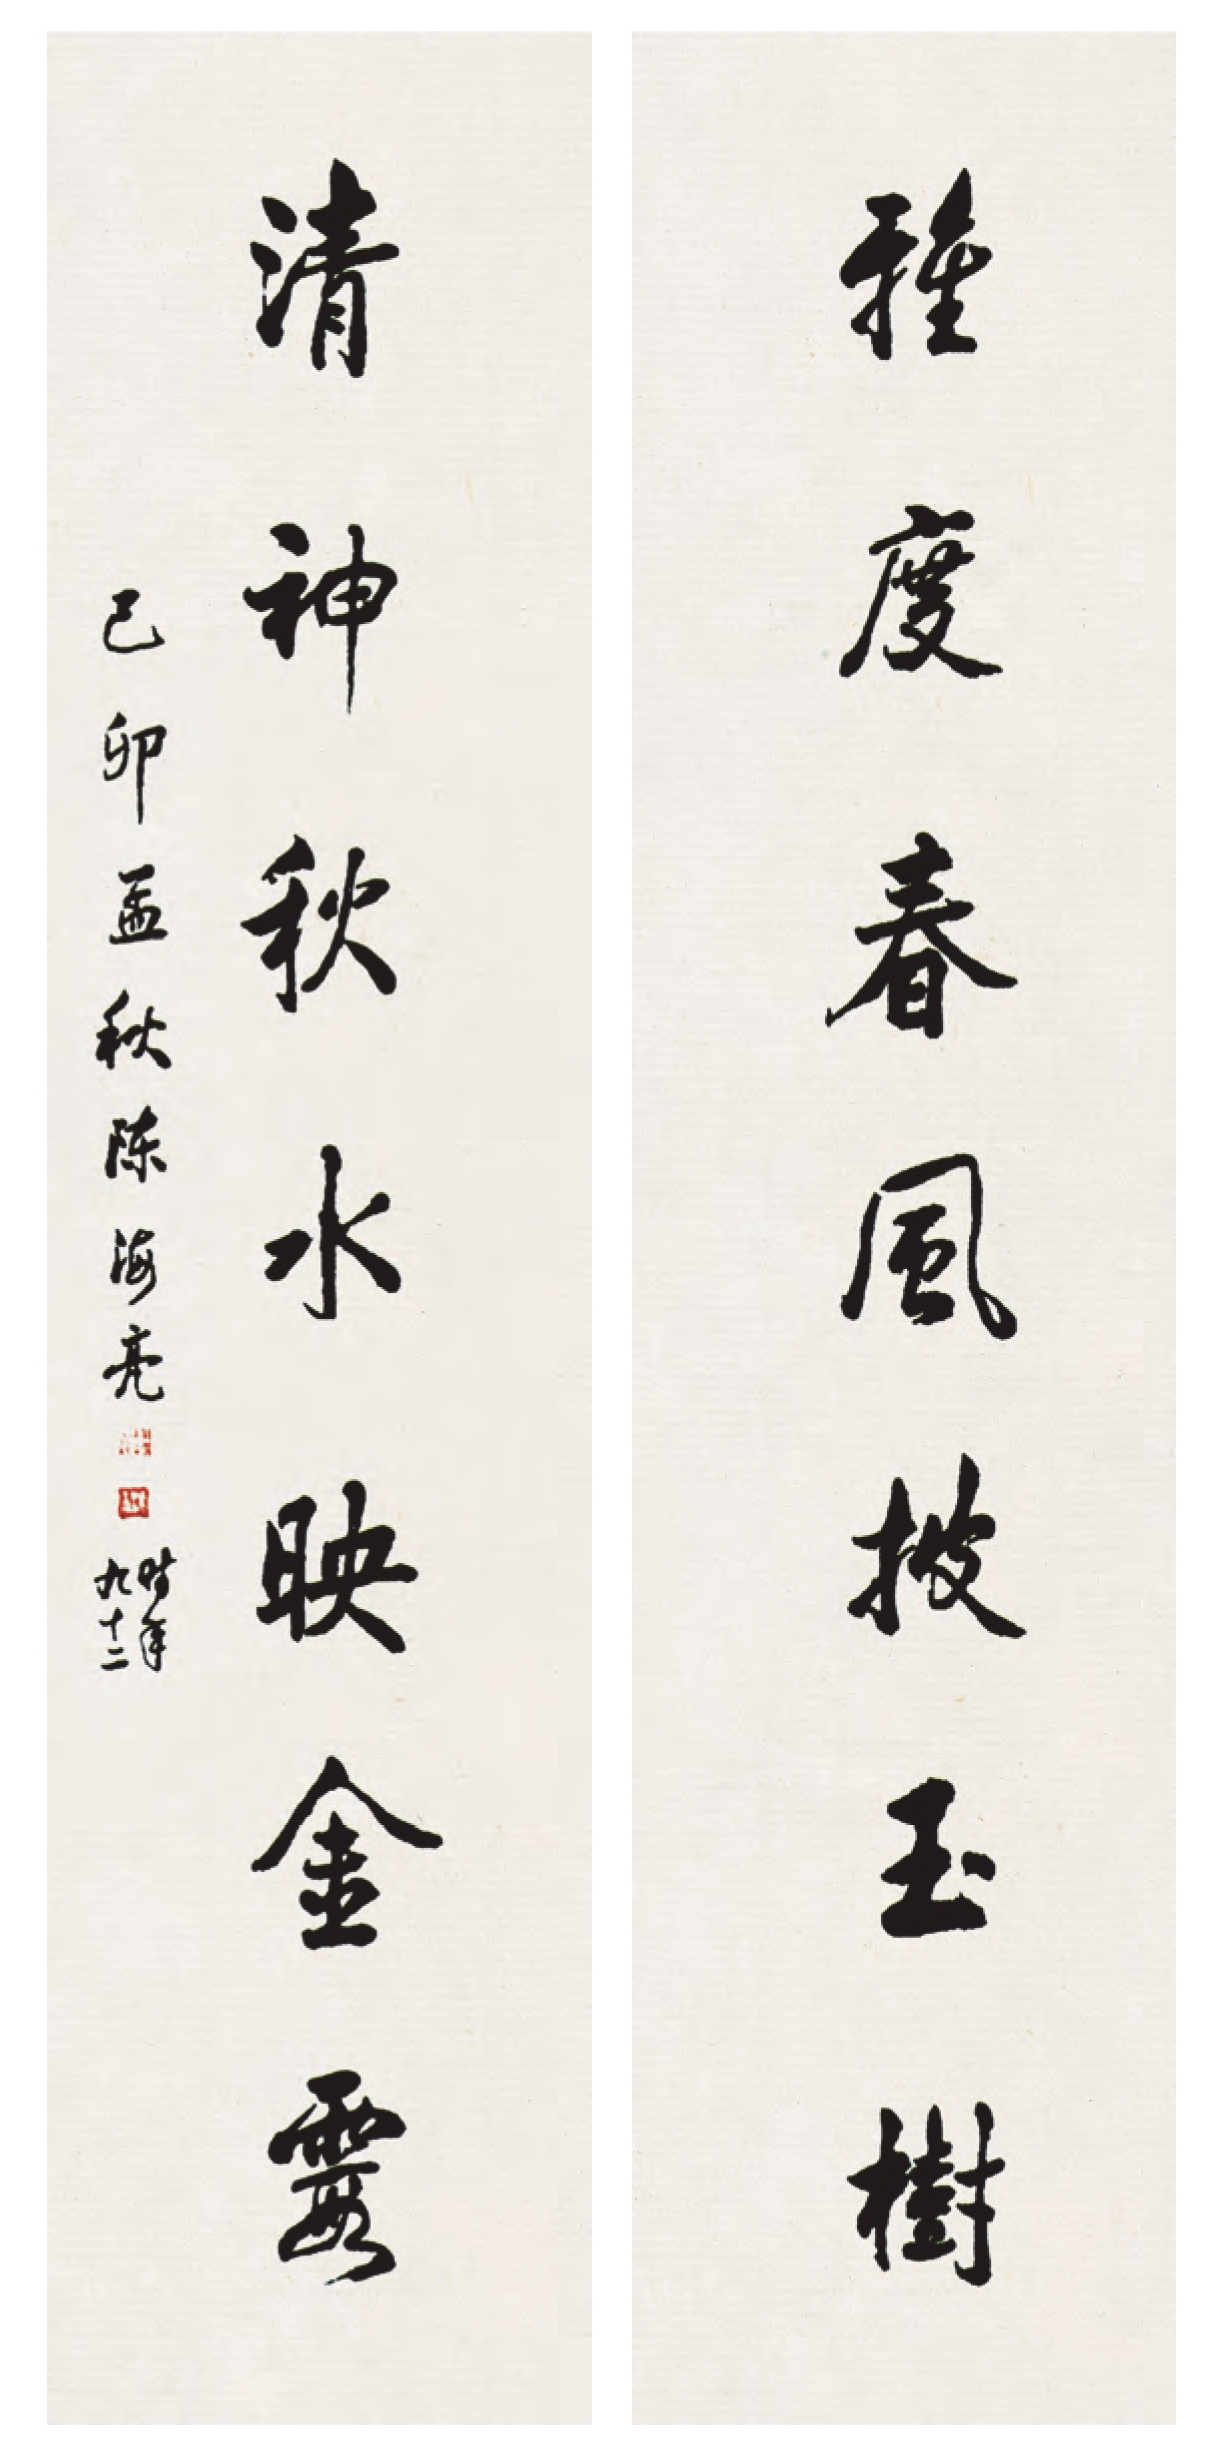 雅度春風披玉樹
清神秋水映金霞
己卯孟秋陈海亮
时年
九十二